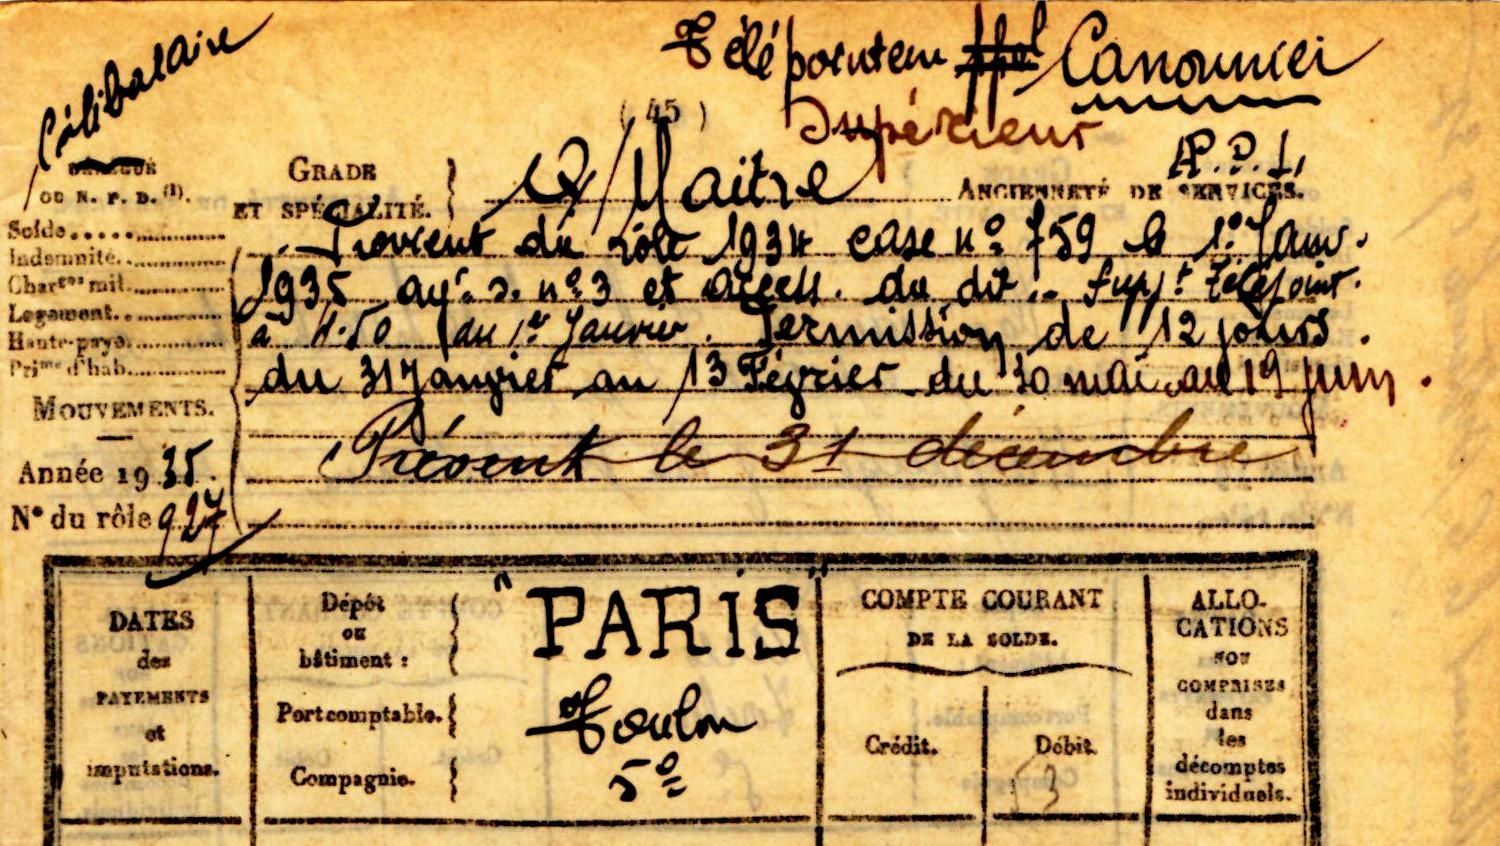 Célibataire
Télépointeur Canonnier
( 45 )
Supérieur
A.P.D.I.
DÉLÉGUÉ
OU N. P. D. (1).
GRADE
ET SPÉCIALITÉ.
Q/Maitre
ANCIENNETÉ DE SERVICES.
Solde
Indemnité
Charges mil.
Logement
Haute-paye
Prime d'hab.
Provient du rôle 1934 case nº 759 le 1º Janv.
1935 ayt. d. nº 3 et access. du dit .. Suppt Télépoint.
à 4.50 au 1er Janvier. Permission de 12 jours
du 31 Janvier au 13 Février du 30 mai au 19 juin.
MOUVEMENTS.
Présent le 31 décembre
Année 1935.
N° du rôle 927
DATES
des
PAYEMENTS
et
imputations.
Dépôt
ou
bâtiment :
"PARIS"
Port comptable.
Toulon
Compagnie.
5º
COMPTE COURANT
DE LA SOLDE.
Crédit.
Débit.
53
ALLO-
CATIONS
NON
COMPRISES
dans
les
décomptes
individuels.